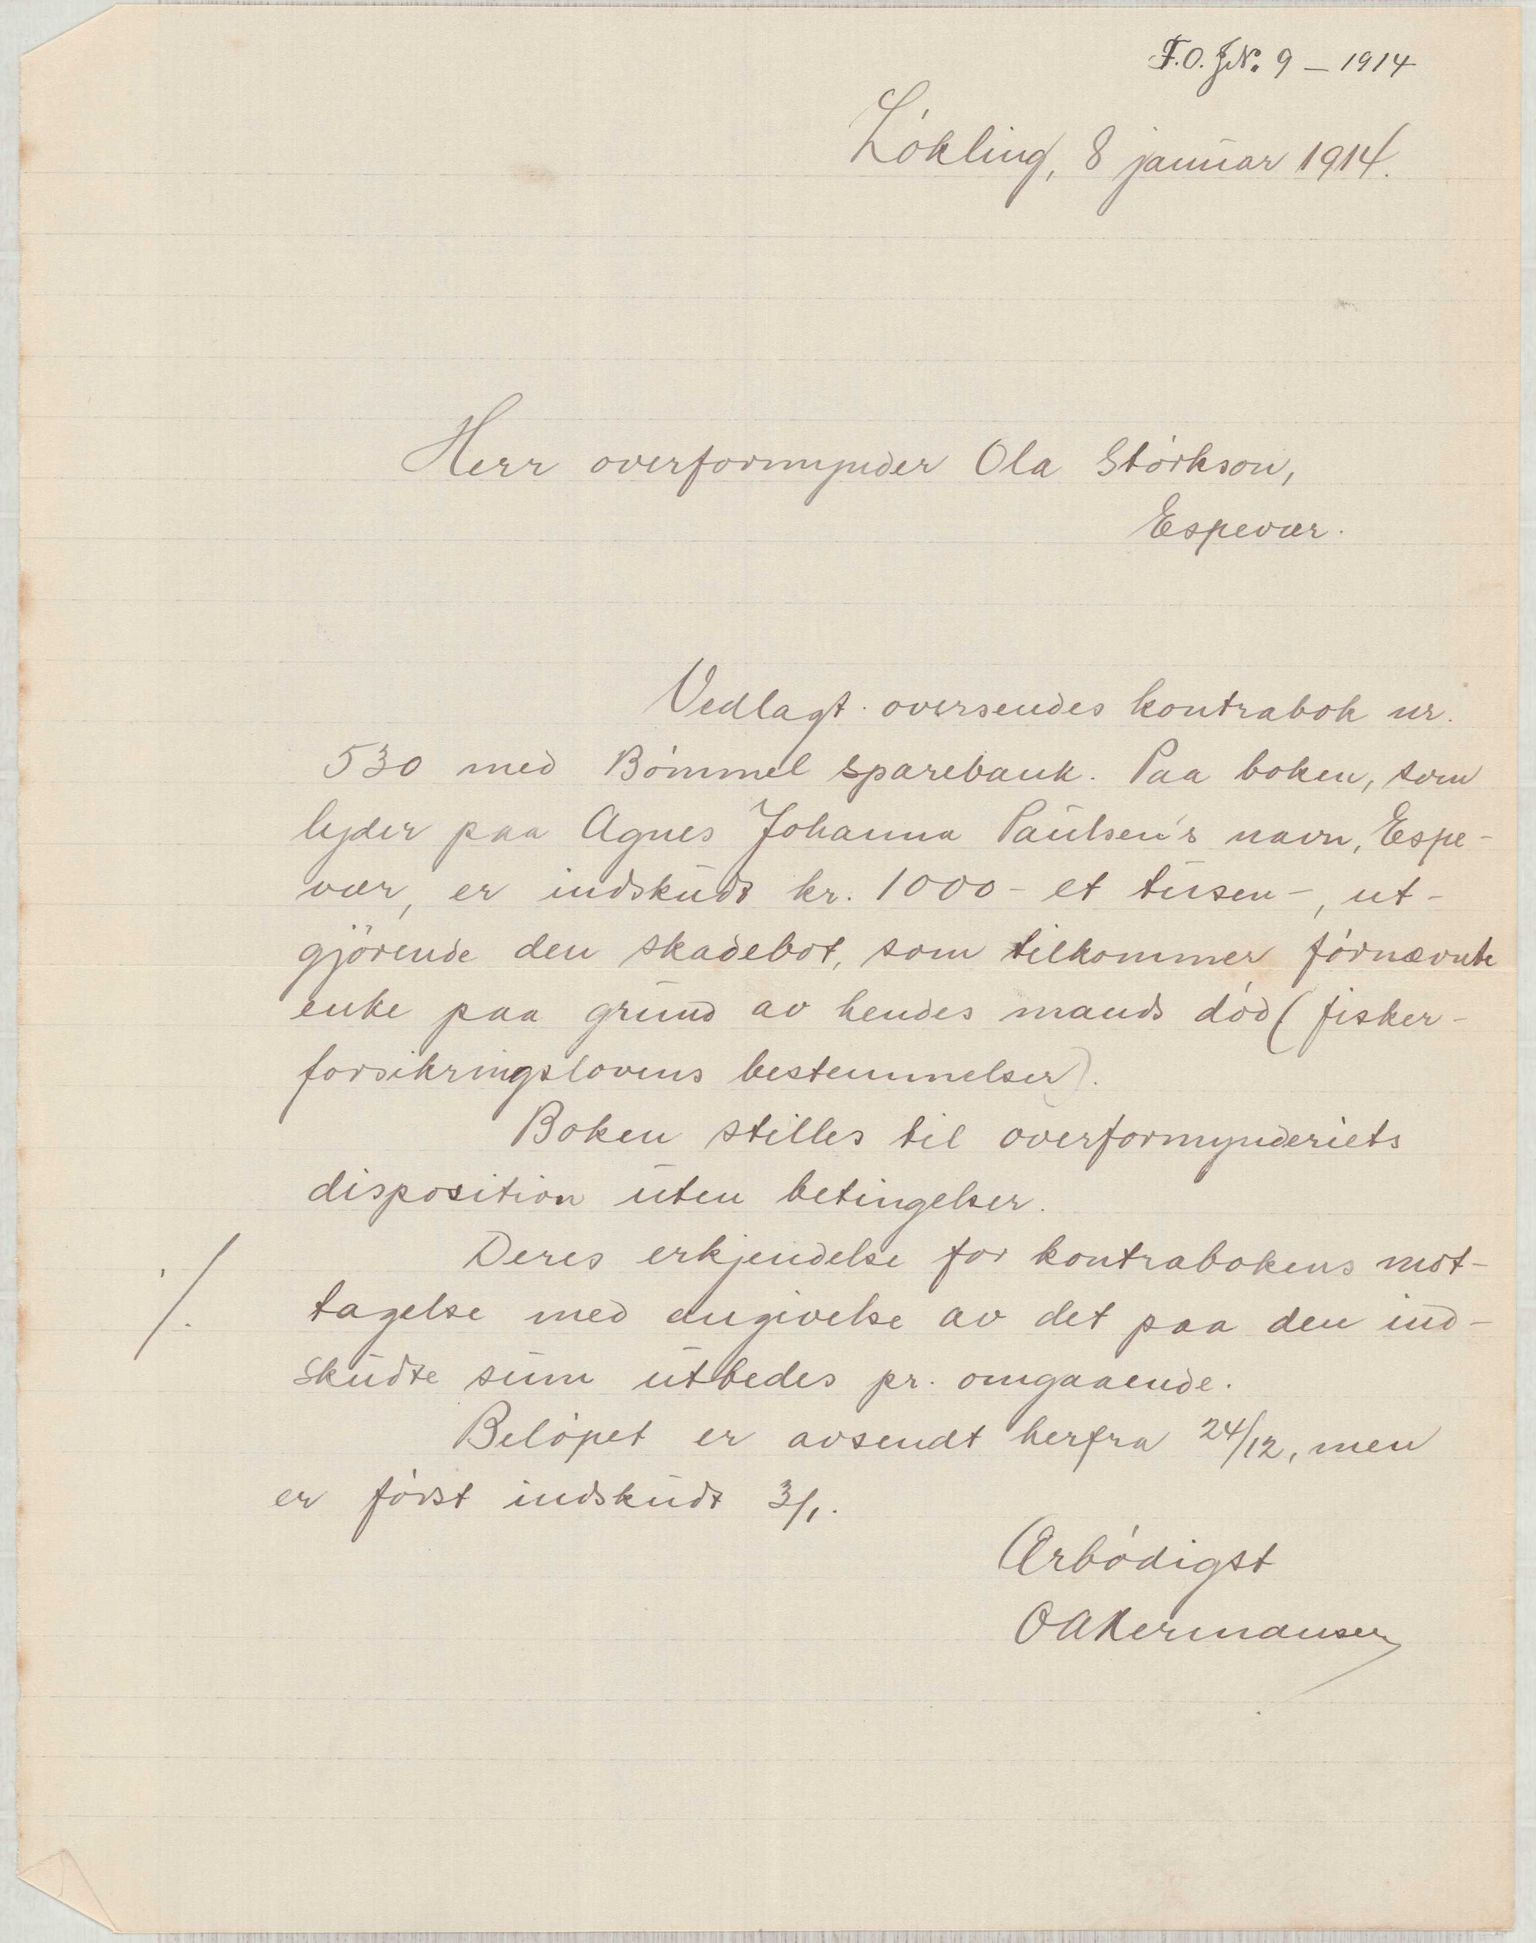 F.O. J.№. 9 – 1914
Lökling, 8 januar 1914.
Herr overformynder Ola Størkson,
Espevær.
Vedlagt oversendes kontrabok nr.
530 med Bømmel sparebank. Paa boken, som
lyder paa Agnes Johanna Paulsen's navn, Espe-
vær, er indskudt kr. 1000 – et tusen –, ut-
gjörende den skadebot, som tilkommer førnævnte
enke paa grund av hendes mands død (fisker-
forsikringslovens bestemmelser).
Boken stilles til overformynderiets
disposition uten betingelser.
./. Deres erkjendelse for kontrabokens mot-
tagelse med angivelse av det paa den ind-
skudte sum utbedes pr. omgaaende.
Beløpet er avsendt herfra 24/12, men
er først indskudt 3/1.
Ærbødigst
O A Hermansen